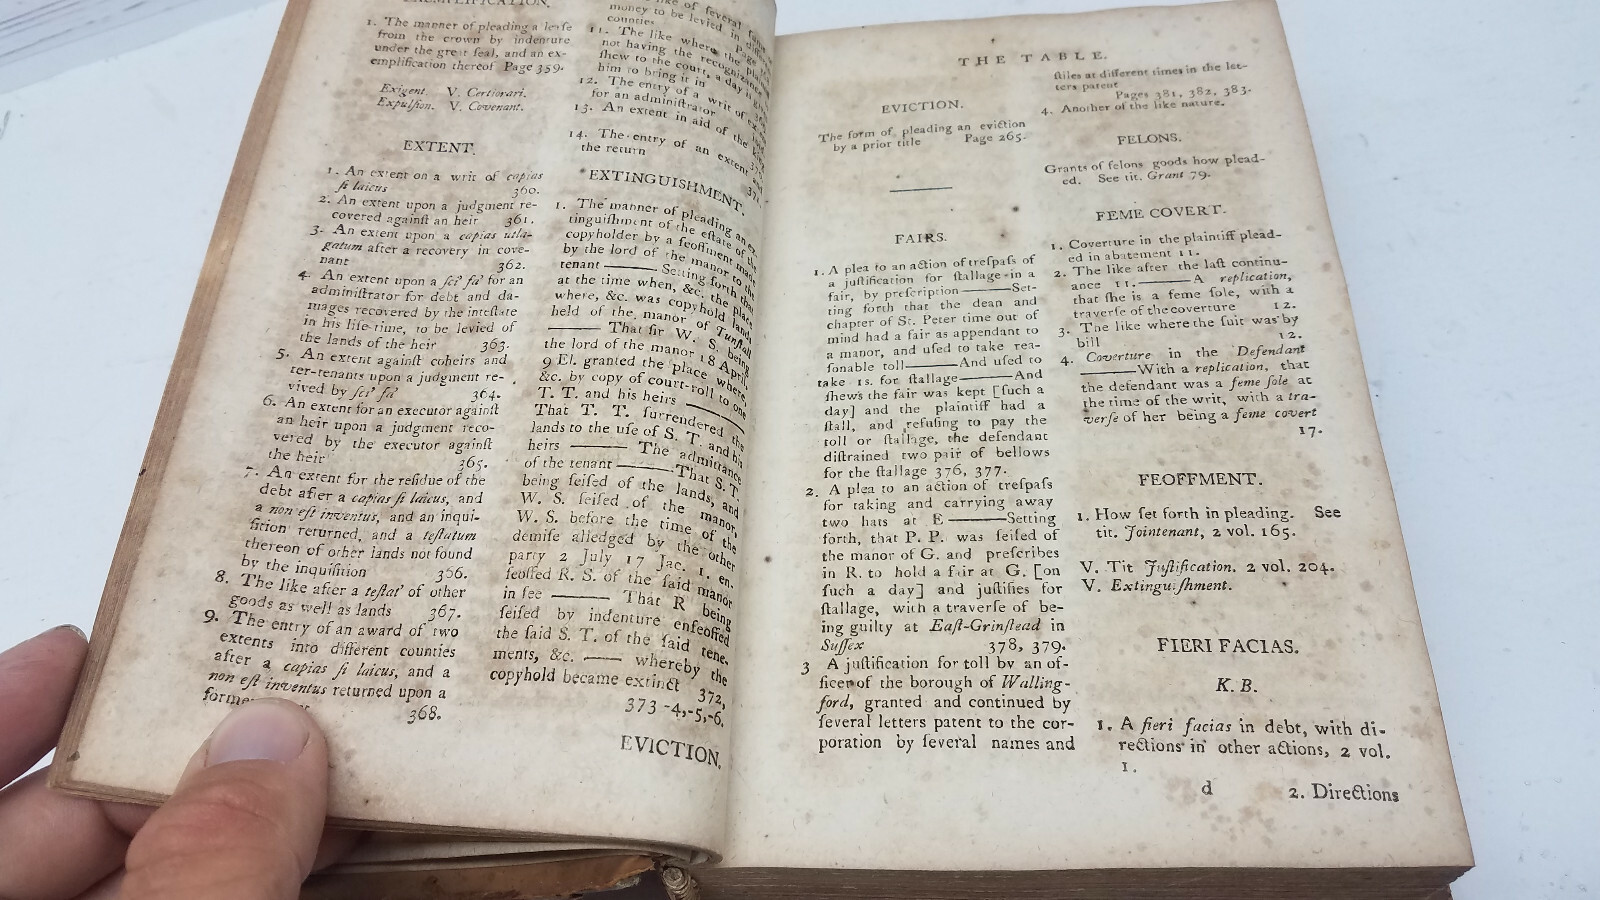 EXEMPLIFICATION.
1. The manner of pleading a leaſe
from the crown by indenture
under the great ſeal, and an ex-
emplification thereof Page 359.
Exigent. V. Certiorari.
Expulſion. V. Covenant.
EXTENT.
1. An extent on a writ of capias
ſi laicus 360.
2. An extent upon a judgment re-
covered againſt an heir 361.
3. An extent upon a capias utla-
gatum after a recovery in cove-
nant 362.
4. An extent upon a ſci' fa' for an
adminiſtrator for debt and da-
mages recovered by the inteſtate
in his life-time, to be levied of
the lands of the heir 363.
5. An extent againſt coheirs and
ter-tenants upon a judgment re-
vived by ſci' fa' 364.
6. An extent for an executor againſt
an heir upon a judgment reco-
vered by the executor againſt
the heir 365.
7. An extent for the reſidue of the
debt after a capias ſi laicus, and
a non eſt inventus, and an inqui-
ſition returned, and a teſtatum
thereof of other lands not found
by the inquiſition 366.
8. The like after a teſtat' of other
goods as well as lands 367.
9. The entry of an award of two
extents into different counties
after a capias ſi laicus, and a
non eſt inventus returned upon a
368.
like of ſeveral
money to be levied in
counties
11. The like where the
not having the recognizance
ſhew to the court, a day
him to bring it in
12. The entry of a writ of
for an adminiſtrator
13. An extent in aid of the
14. The entry of an extent and
the return 371.
EXTINGUISHMENT.
1. The manner of pleading an ex-
tinguiſhment of the eſtate of the
copyholder by a feoffment made
by the lord of the manor to the
tenant —— Setting forth that
at the time when, &c. the place
where, &c. was copyhold lands
held of the manor of Tunſtall
—— That ſir W. S. being
the lord of the manor 18 April,
9 El. granted the place where,
&c. by copy of court-roll to one
T. T. and his heirs ——
That T. T. ſurrendered the
lands to the uſe of S. T. and his
heirs —— The admittance
of the tenant —— That S. T.
being ſeiſed of the lands, and
W. S. ſeiſed of the manor,
W. S. before the time of the
demiſe alledged by the other
party 2 July 17 Jac. 1. en.
feoffed R. S. of the ſaid manor
in fee —— That R being
ſeiſed by indenture enfeoffed
the ſaid S. T. of the ſaid tene-
ments, &c. —— whereby the
copyhold became extinct 372,
373 -4,-5,-6.
EVICTION.
THE TABLE.
EVICTION.
The form of pleading an eviction
by a prior title Page 265.
FAIRS.
1. A plea to an action of treſpaſs of
a juſtification for ſtallage in a
fair, by preſcription —— Set-
ting forth that the dean and
chapter of St. Peter time out of
mind had a fair as appendant to
a manor, and uſed to take rea-
ſonable toll —— And uſed to
take 1s. for ſtallage —— And
ſhews the fair was kept [ſuch a
day] and the plaintiff had a
ſtall, and refuſing to pay the
toll or ſtallage, the defendant
diſtrained two pair of bellows
for the ſtallage 376, 377.
2. A plea to an action of treſpaſs
for taking and carrying away
two hats at E —— Setting
forth, that P. P. was ſeiſed of
the manor of G. and preſcribes
in R. to hold a fair at G. [on
ſuch a day] and juſtifies for
ſtallage, with a traverſe of be-
ing guilty at Eaſt-Grinſtead in
Suſſex 378, 379.
3 A juſtification for toll by an of-
ficer of the borough of Walling-
ford, granted and continued by
ſeveral letters patent to the cor-
poration by ſeveral names and
ſtiles at different times in the let-
ters patent
Pages 381, 382, 383.
4. Another of the like nature.
FELONS.
Grants of felons goods how plead-
ed. See tit. Grant 79.
FEME COVERT.
1. Coverture in the plaintiff plead-
ed in abatement 11.
2. The like after the laſt continu-
ance 11. —— A replication,
that ſhe is a feme ſole, with a
traverſe of the coverture 12.
3. The like where the ſuit was by
bill 12.
4. Coverture in the Defendant
—— With a replication, that
the defendant was a feme ſole at
the time of the writ, with a tra-
verſe of her being a feme covert
17.
FEOFFMENT.
1. How ſet forth in pleading. See
tit. Jointenant, 2 vol. 165.
V. Tit Juſtification. 2 vol. 204.
V. Extinguiſhment.
FIERI FACIAS.
K. B.
1. A fieri facias in debt, with di-
rections in other actions, 2 vol.
1.
d 2. Directions